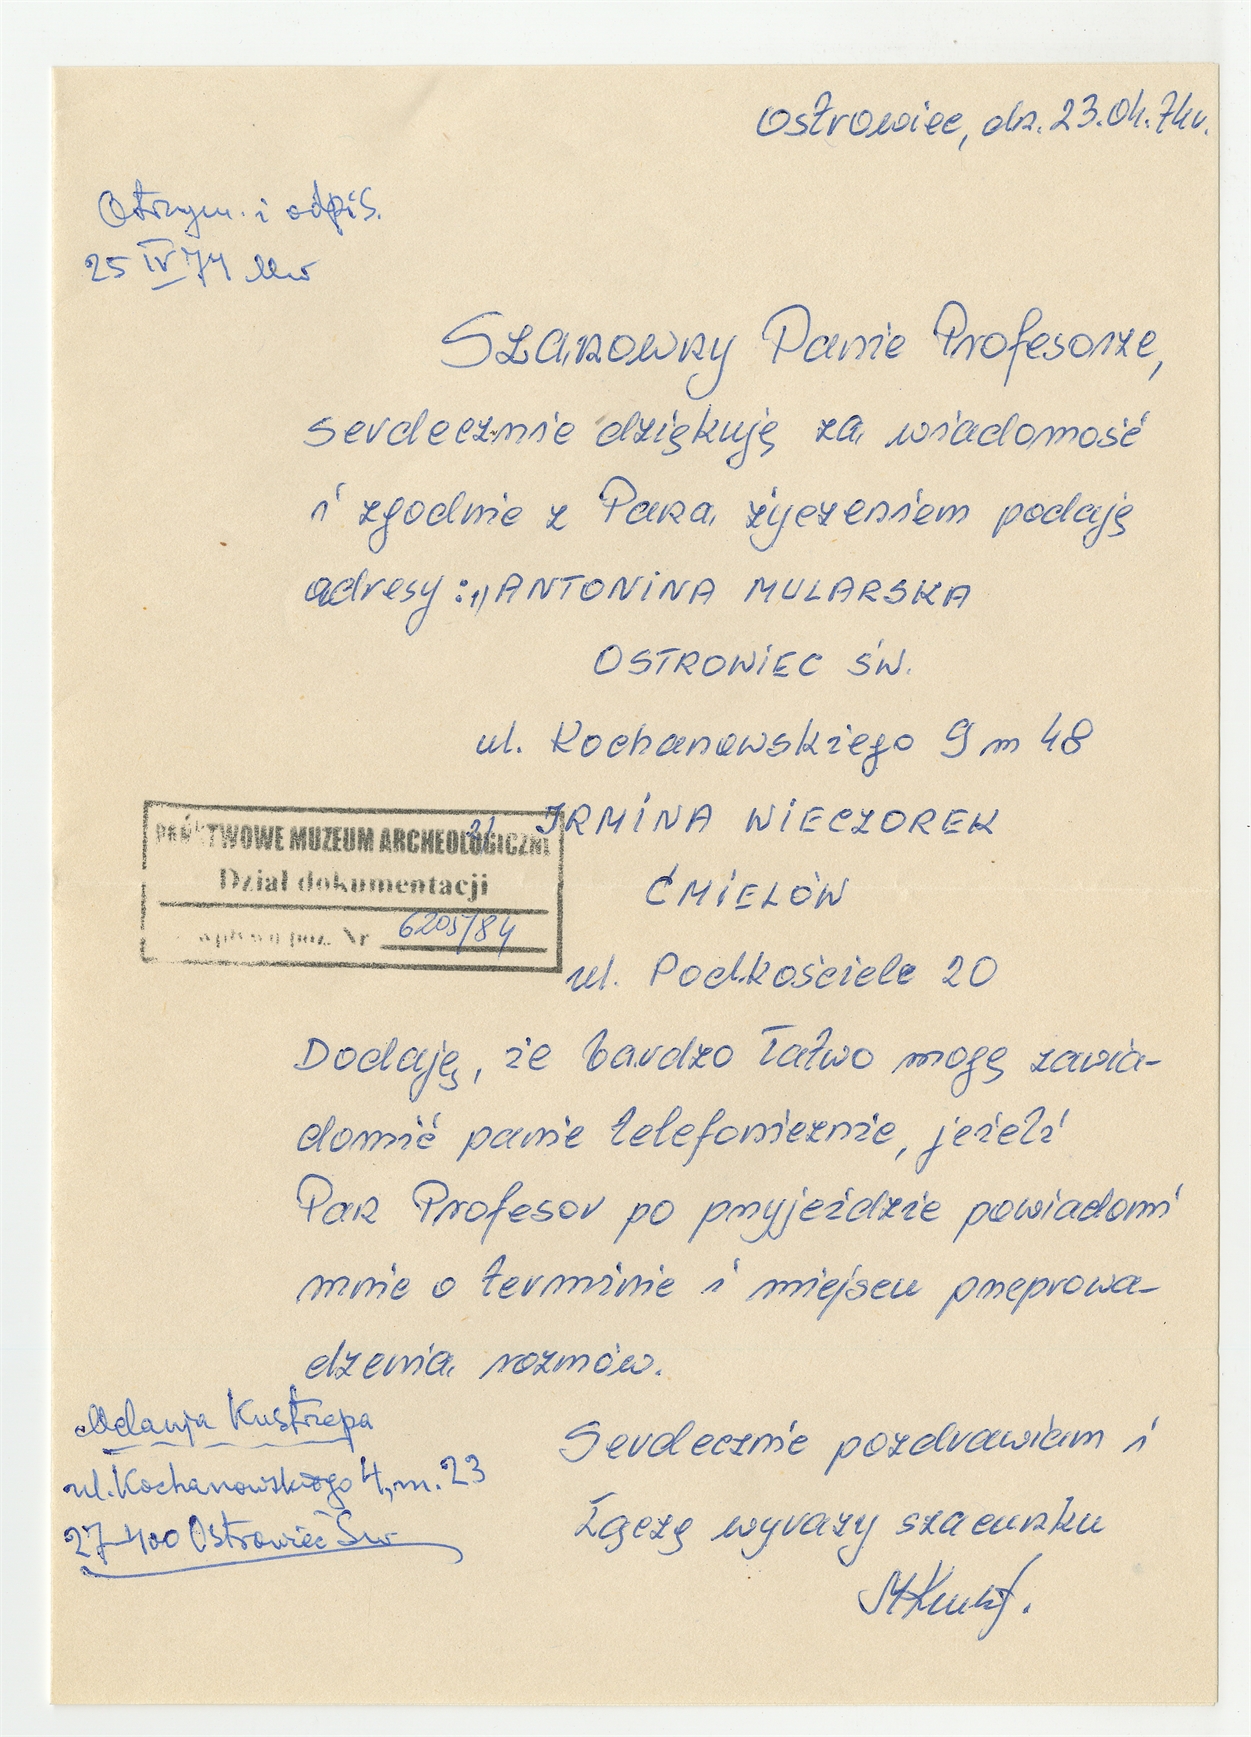 Ostrowiec, dn. 23.04.74r.
Otrzym. i odpis.
25 IV 74
Szanowny Panie Profesorze,
serdecznie dziękuję za wiadomość
i zgodnie z Pana życzeniem podaję
adresy: 1) ANTONINA MULARSKA
OSTROWIEC ŚW.
ul. Kochanowskiego 9 m 48
2) IRMINA WIECZOREK
PAŃSTWOWE MUZEUM ARCHEOLOGICZNE
Dział dokumentacji
ĆMIELÓW
wpływu poz. Nr 6205/84
ul. Podkościele 20
Dodaję, że bardzo łatwo mogę zawia-
domić panie telefonicznie, jeżeli
Pan Profesor po przyjeździe powiadomi
mnie o terminie i miejscu przeprowa-
dzenia rozmów.
Melanja Kustrzepa
ul. Kochanowskiego 4, m. 23
27-400 Ostrowiec Św
Serdecznie pozdrawiam i
łączę wyrazy szacunku